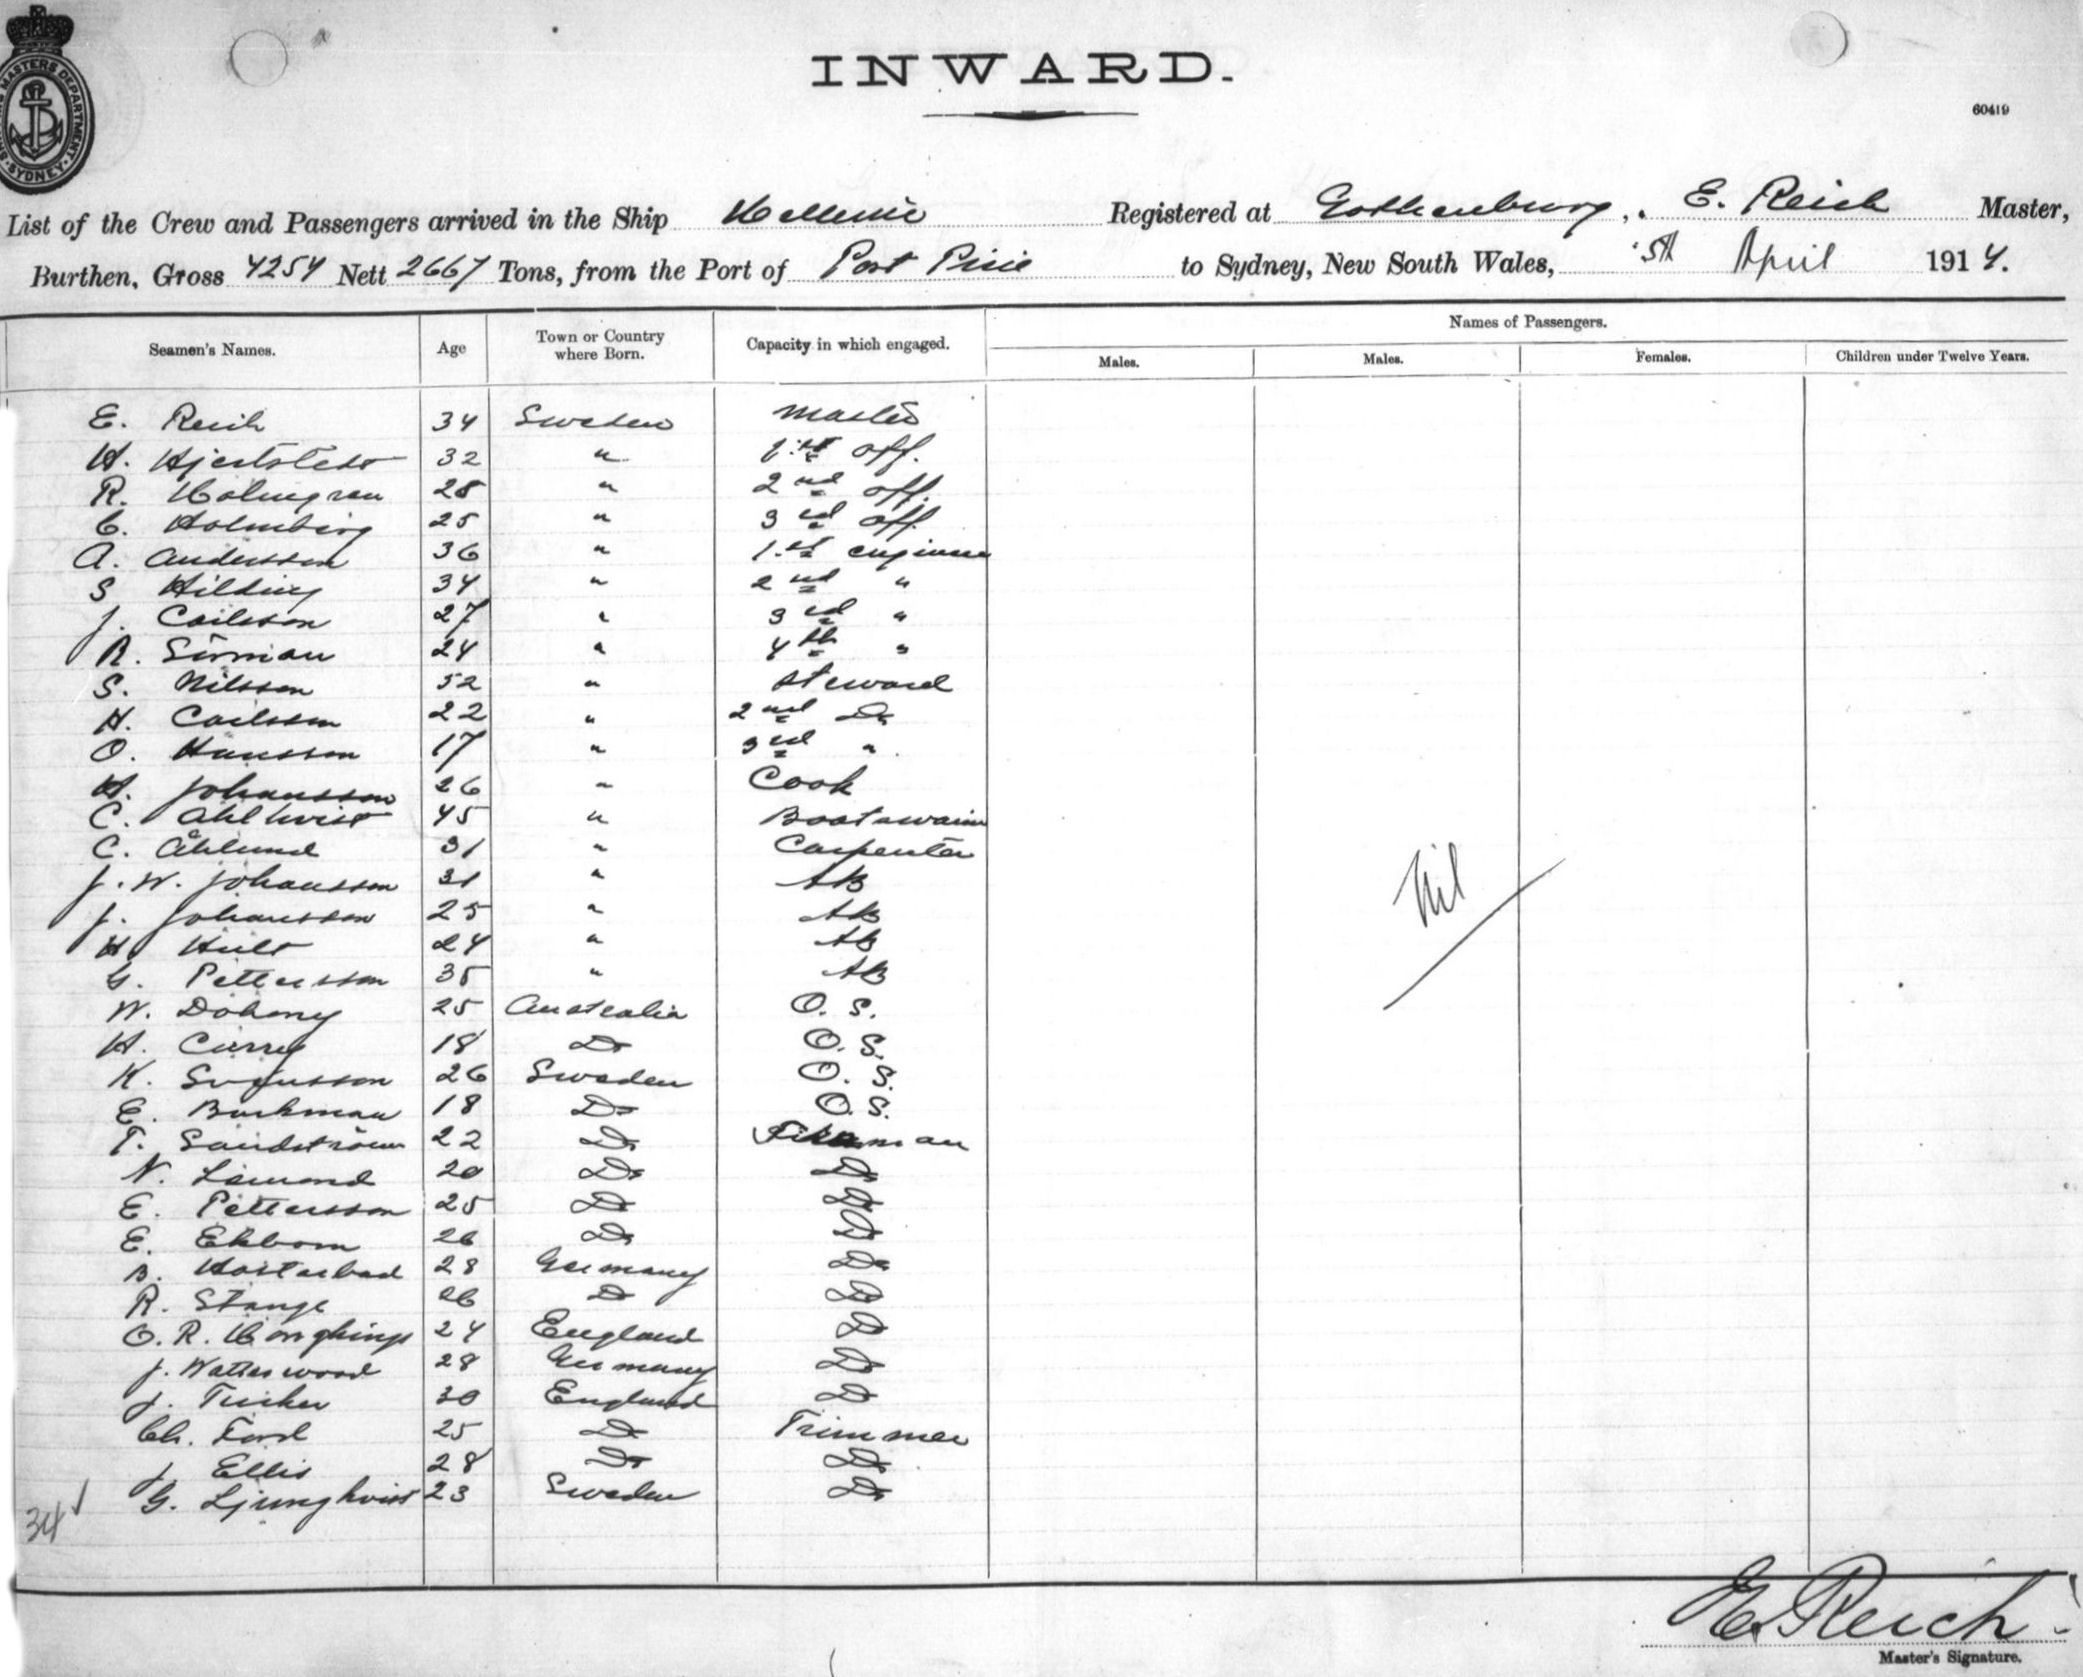 INWARD.
60419
MASTERS DEPARTMENT
SYDNEY
List of the Crew and Passengers arrived in the Ship Hellenic Registered at Gothenburg, E. Reich Master,
Burthen, Gross 4254 Nett 2667 Tons, from the Port of Port Pirie to Sydney, New South Wales, 5th April 1914.
Names of Passengers.
Seamen's Names. Age Town or Country where Born. Capacity in which engaged. Males. Males. Females. Children under Twelve Years.
E. Reich 34 Sweden Master
H. 32 " 1st off.
R. Holmgren 28 " 2nd off.
C. Holmberg 25 " 3rd off.
A. Andersson 36 " 1st engineer
S Hilding 34 " 2nd "
J. Carlsson 27 " 3rd "
R. Sörman 24 " 4th "
S. Nilsson 52 " Steward
H. Carlsson 22 " 2nd Do
O. Hansson 17 " 3rd "
H. Johansson 26 " Cook
C. Ahlkvist 45 " Boatswain
C. Åhlund 31 " Carpenter
J. W. Johansson 31 " AB
J. Johansson 25 " AB
H Hult 24 " AB
G. Pettersson 35 " AB
W. Doheny 25 Australia O. S.
H. Curry 18 Do O. S.
K. Svensson 26 Sweden O. S.
E. Backman 18 Do O. S.
T. Sandström 22 Do Fireman
N. 20 Do Do
E. Pettersson 25 Do Do
E. Ekbom 26 Do Do
B. 28 Germany Do
R. Stange 26 Do Do
O. R. 24 England Do
J. Watterwood 28 Germany Do
J. Tucker 30 England Do
Ch. Ford 25 Do Trimmer
J Ellis 28 Do Do
G. Ljungkvist 23 Sweden Do
34
Nil
E. Reich
Master's Signature.